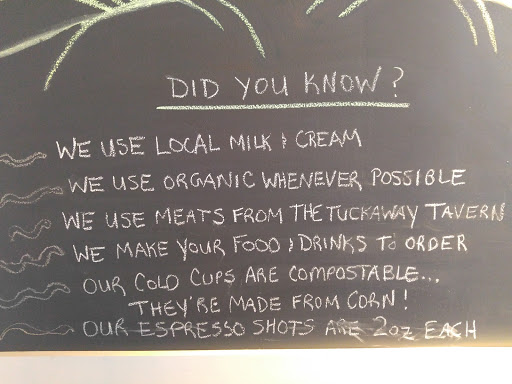 DID YOU KNOW?
WE USE LOCAL MILK & CREAM
WE USE ORGANIC WHENEVER POSSIBLE
WE USE MEATS FROM THE TUCKAWAY TAVERN
WE MAKE YOUR FOOD & DRINKS TO ORDER
OUR COLD CUPS ARE COMPOSTABLE...
THEY'RE MADE FROM CORN!
OUR ESPRESSO SHOTS ARE 2oz EACH